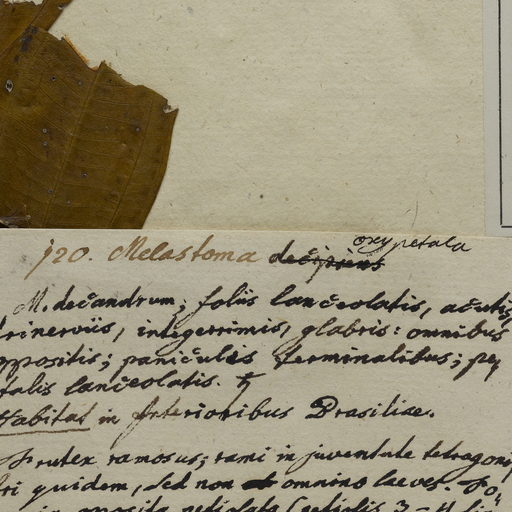 120. Melastoma decipiens oxypetala
M. decandrum; foliis lanceolatis, acutis,
trinerviis, integerrimis, glabris: omnibus
oppositis; paniculis terminalibus; pe,
talis lanceolatis. ♄
Habitat in Interioribus Brasiliae.
Frutex ramosus; rami in juventute tetragoni,
quidem, sed non omnino laeves. Fo,
opposita petiolata (petiolis 3-4